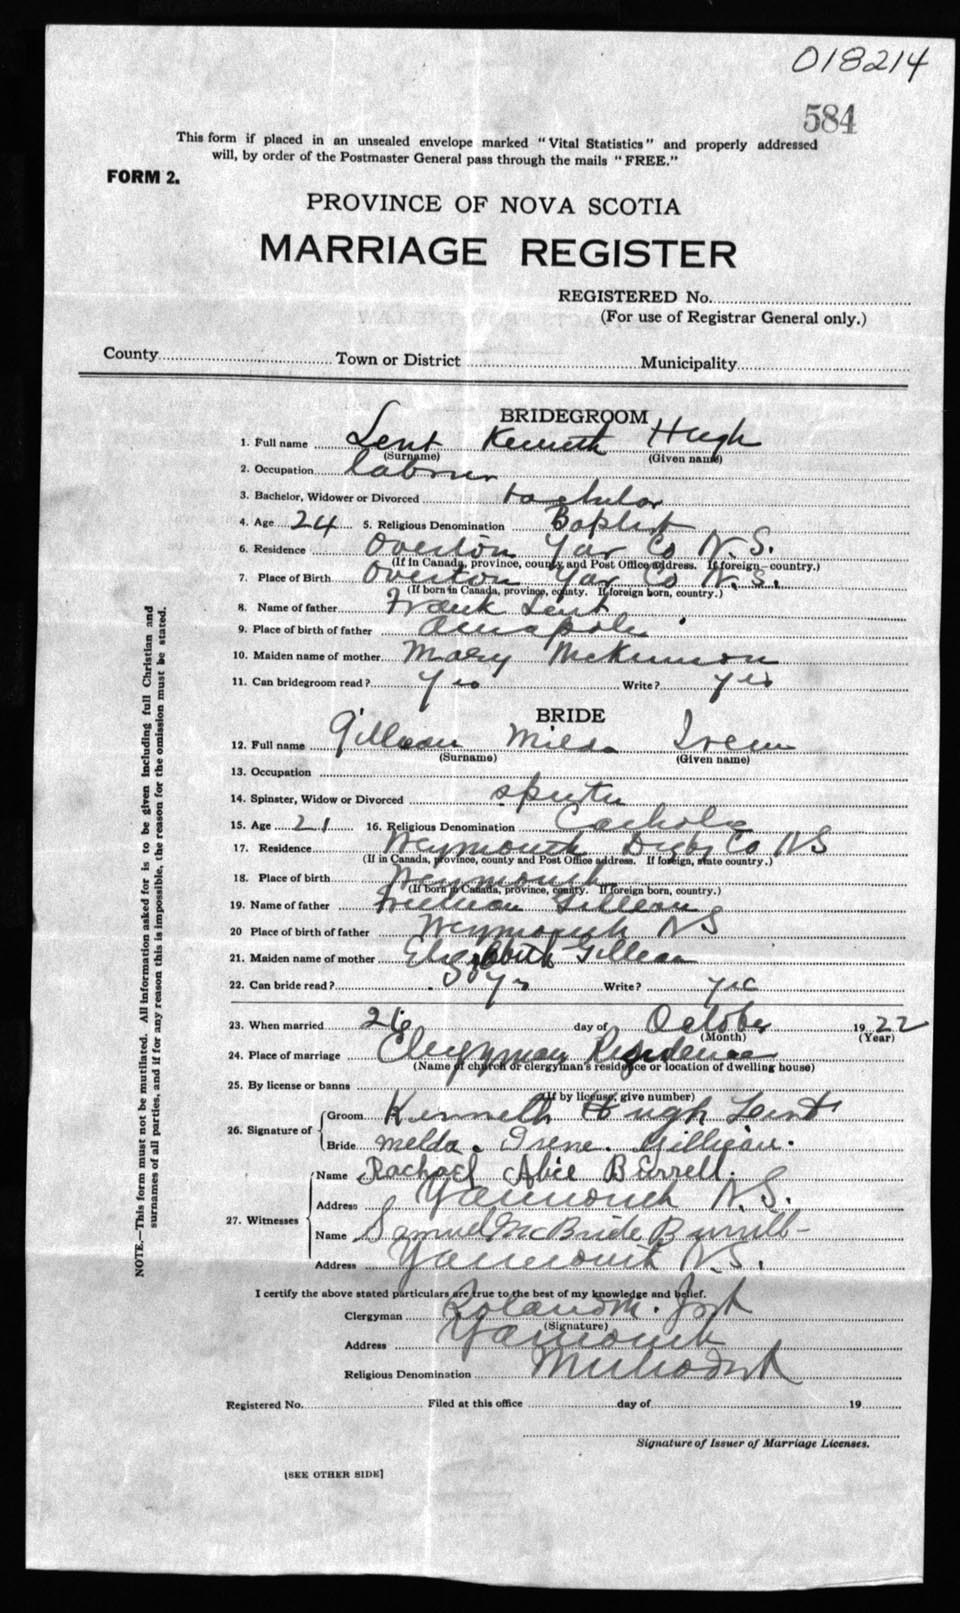 018214
584
This form if placed in an unsealed envelope marked "Vital Statistics" and properly addressed
will, by order of the Postmaster General pass through the mails "FREE."
FORM 2.
PROVINCE OF NOVA SCOTIA
MARRIAGE REGISTER
REGISTERED No.
(For use of Registrar General only.)
County Town or District Municipality
BRIDEGROOM
1. Full name Lent Kenneth Hugh
(Surname) (Given name)
2. Occupation labourer
3. Bachelor, Widower or Divorced bachelor
4. Age 24 5. Religious Denomination Baptist
6. Residence Overton Yar Co N.S.
(If in Canada, province, county and Post Office address. If foreign—country.)
7. Place of Birth Overton Yar Co N.S.
(If born in Canada, province, county. If foreign born, country.)
8. Name of father Frank Lent
9. Place of birth of father Annapolis
10. Maiden name of mother Mary McKinnon
11. Can bridegroom read? Yes Write? yes
BRIDE
12. Full name Gillean Milda Irene
(Surname) (Given name)
13. Occupation
14. Spinster, Widow or Divorced
15. Age 21 16. Religious Denomination Catholic
17. Residence Weymouth Digby Co NS
(If in Canada, province, county and Post Office address. If foreign, state country.)
18. Place of birth Weymouth
(If born in Canada, province, county. If foreign born, country.)
19. Name of father William Gillean
20 Place of birth of father Weymouth NS
21. Maiden name of mother Elizabeth Gillean
22. Can bride read? yes Write? yes
23. When married 26 day of October 1922
(Month) (Year)
24. Place of marriage Clergyman Residence
(Name of church or clergyman's residence or location of dwelling house)
25. By license or banns
(If by license, give number)
26. Signature of
Groom Kenneth Hugh Lent
Bride Melda. Irene. Gilligan.
27. Witnesses
Name Rachael Alice Burrell.
Address Yarmouth N.S.
Name Samuel McBride Burrill
Address Yarmouth N.S.
I certify the above stated particulars are true to the best of my knowledge and belief.
Clergyman Roland M.
(Signature)
Address Yarmouth
Religious Denomination Methodist
Registered No. Filed at this office day of 19
Signature of Issuer of Marriage Licenses.
[SEE OTHER SIDE]
NOTE.—This form must not be mutilated. All information asked for is to be given including full Christian and
surnames of all parties, and if for any reason this is impossible, the reason for the omission must be stated.